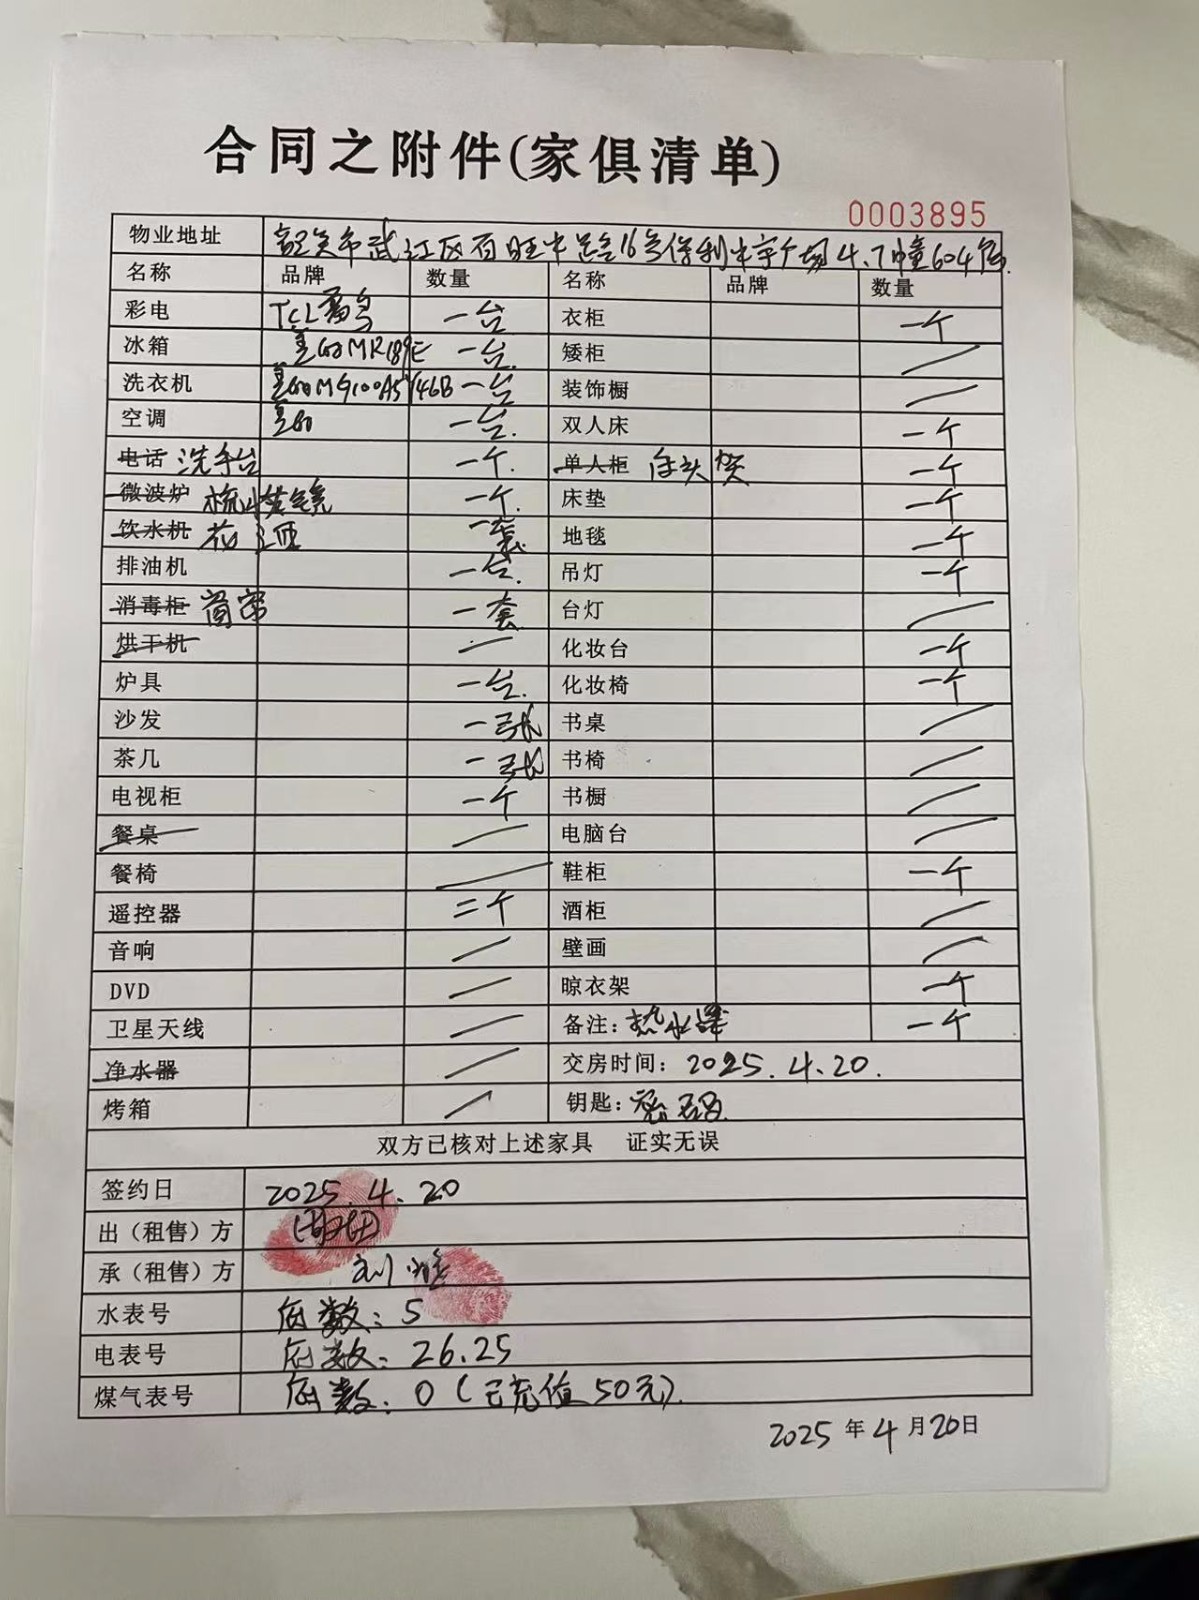 合同之附件(家俱清单)
0003895
物业地址 韶关市武江区百旺中路16号保利中宇广场4.7幢604房.
名称 品牌 数量 名称 品牌 数量
彩电 TCL 一台 衣柜 一个
冰箱 美的MR189E 一台. 矮柜 /
洗衣机 美的MG100A5Y46B 一台 装饰橱 /
空调 美的 一台. 双人床 一个
电话 洗手台 一个. 单人柜 床头柜 一个
微波炉 梳妆镜 一个. 床垫 一个
饮水机 花洒 一套. 地毯 一个
排油机 一台. 吊灯 一个
消毒柜 窗帘 一套 台灯 /
烘干机 / 化妆台 一个
炉具 一台. 化妆椅 一个
沙发 一张 书桌 /
茶几 一张 书椅 /
电视柜 一个 书橱 /
餐桌 / 电脑台 /
餐椅 / 鞋柜 一个
遥控器 二个 酒柜 /
音响 / 壁画 /
DVD / 晾衣架 一个
卫星天线 / 备注: 热水器 一个
净水器 / 交房时间: 2025.4.20.
烤箱 / 钥匙: 密码.
双方已核对上述家具 证实无误
签约日 2025.4.20
出（租售）方
承（租售）方 刘
水表号 底数: 5
电表号 底数: 26.25
煤气表号 底数: 0 (已充值50元).
2025 年 4 月 20 日